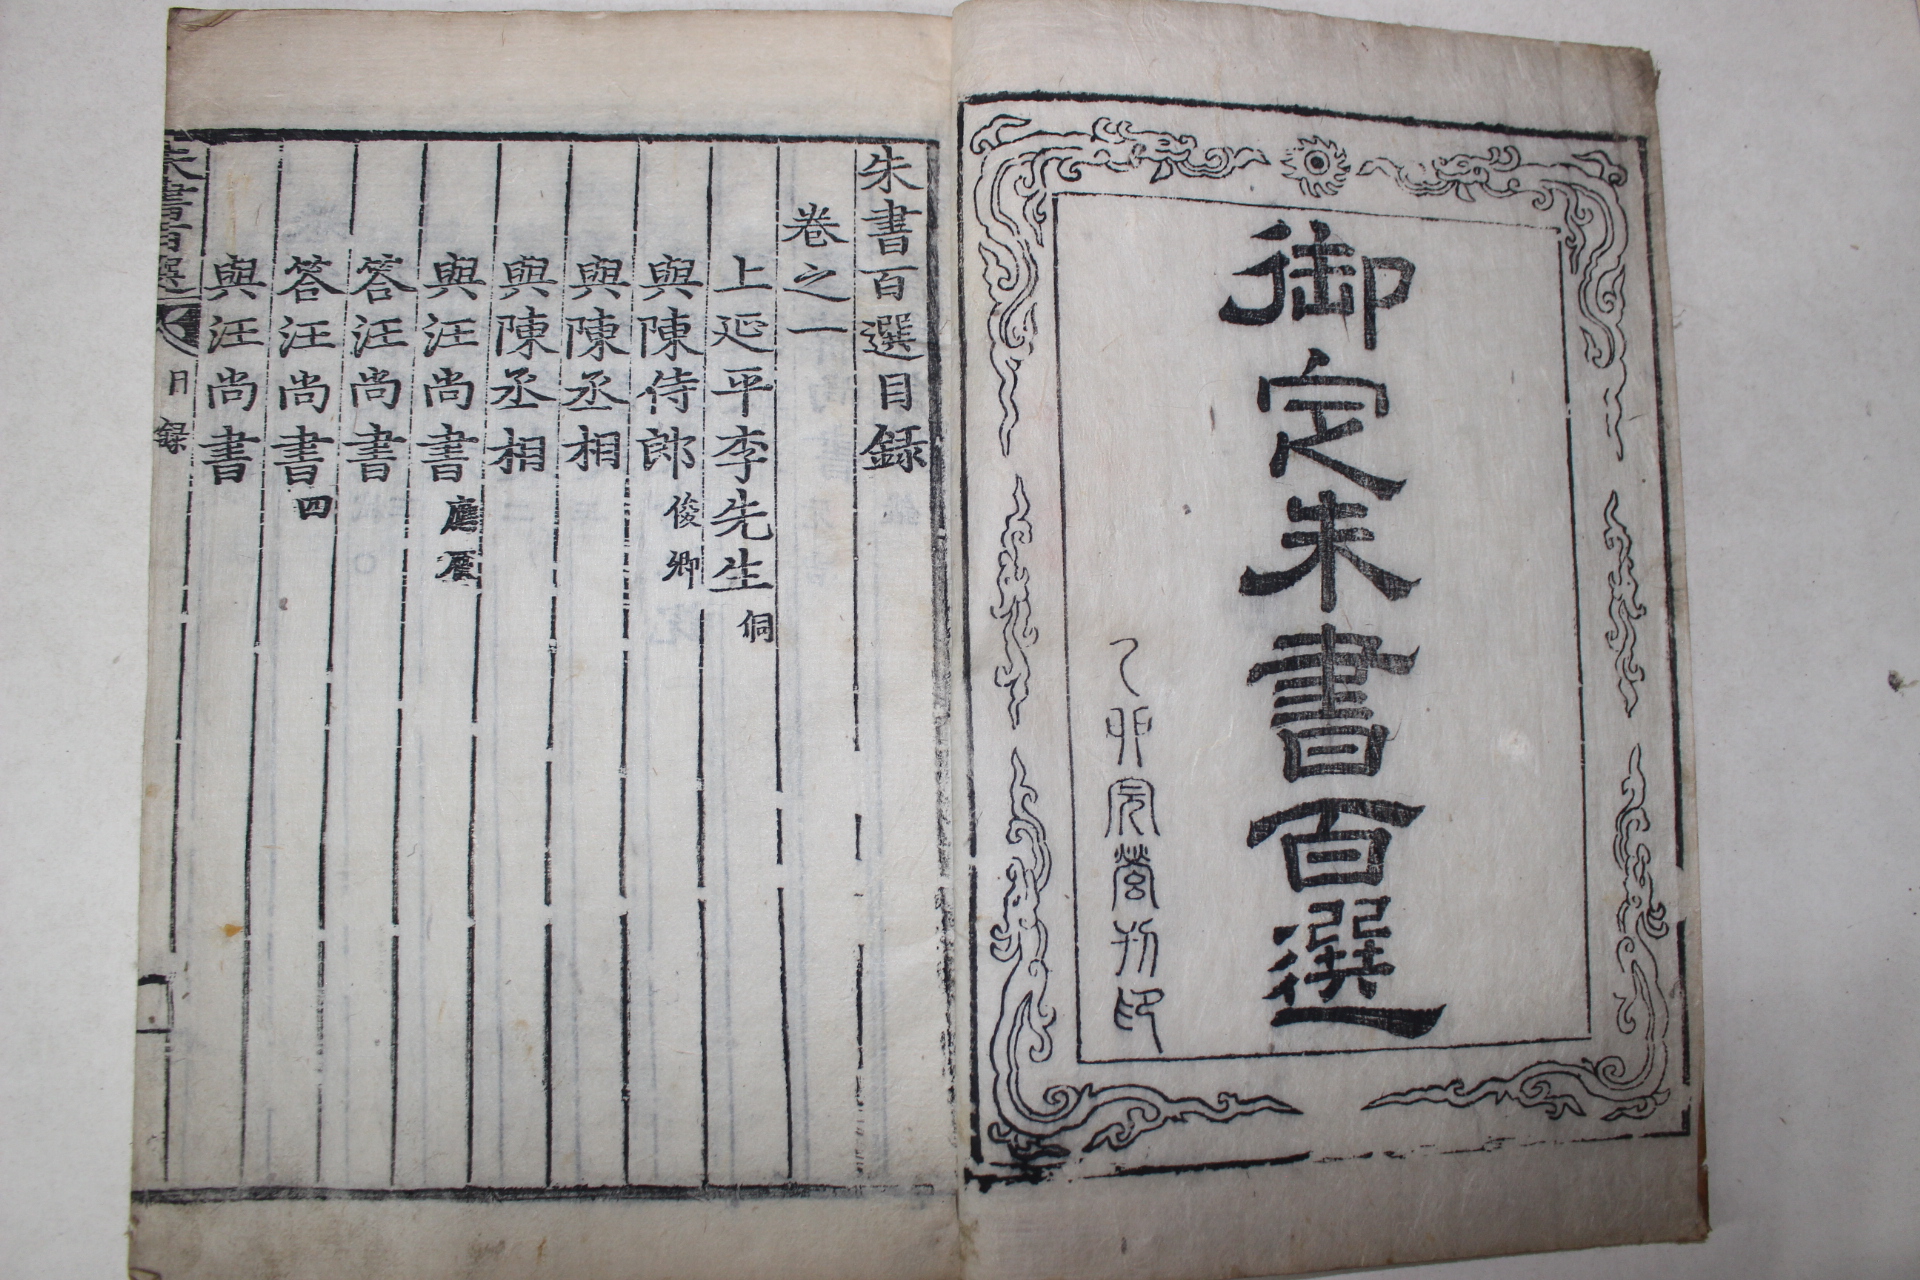 御定朱書百選
乙卯完營刊印
朱書百選目録
卷之一
上延平李先生 侗
與陳侍郎 俊卿
與陳丞相
與陳丞相
與汪尚書 應辰
答汪尚書
答汪尚書 四
與汪尚書
朱書百選 目録